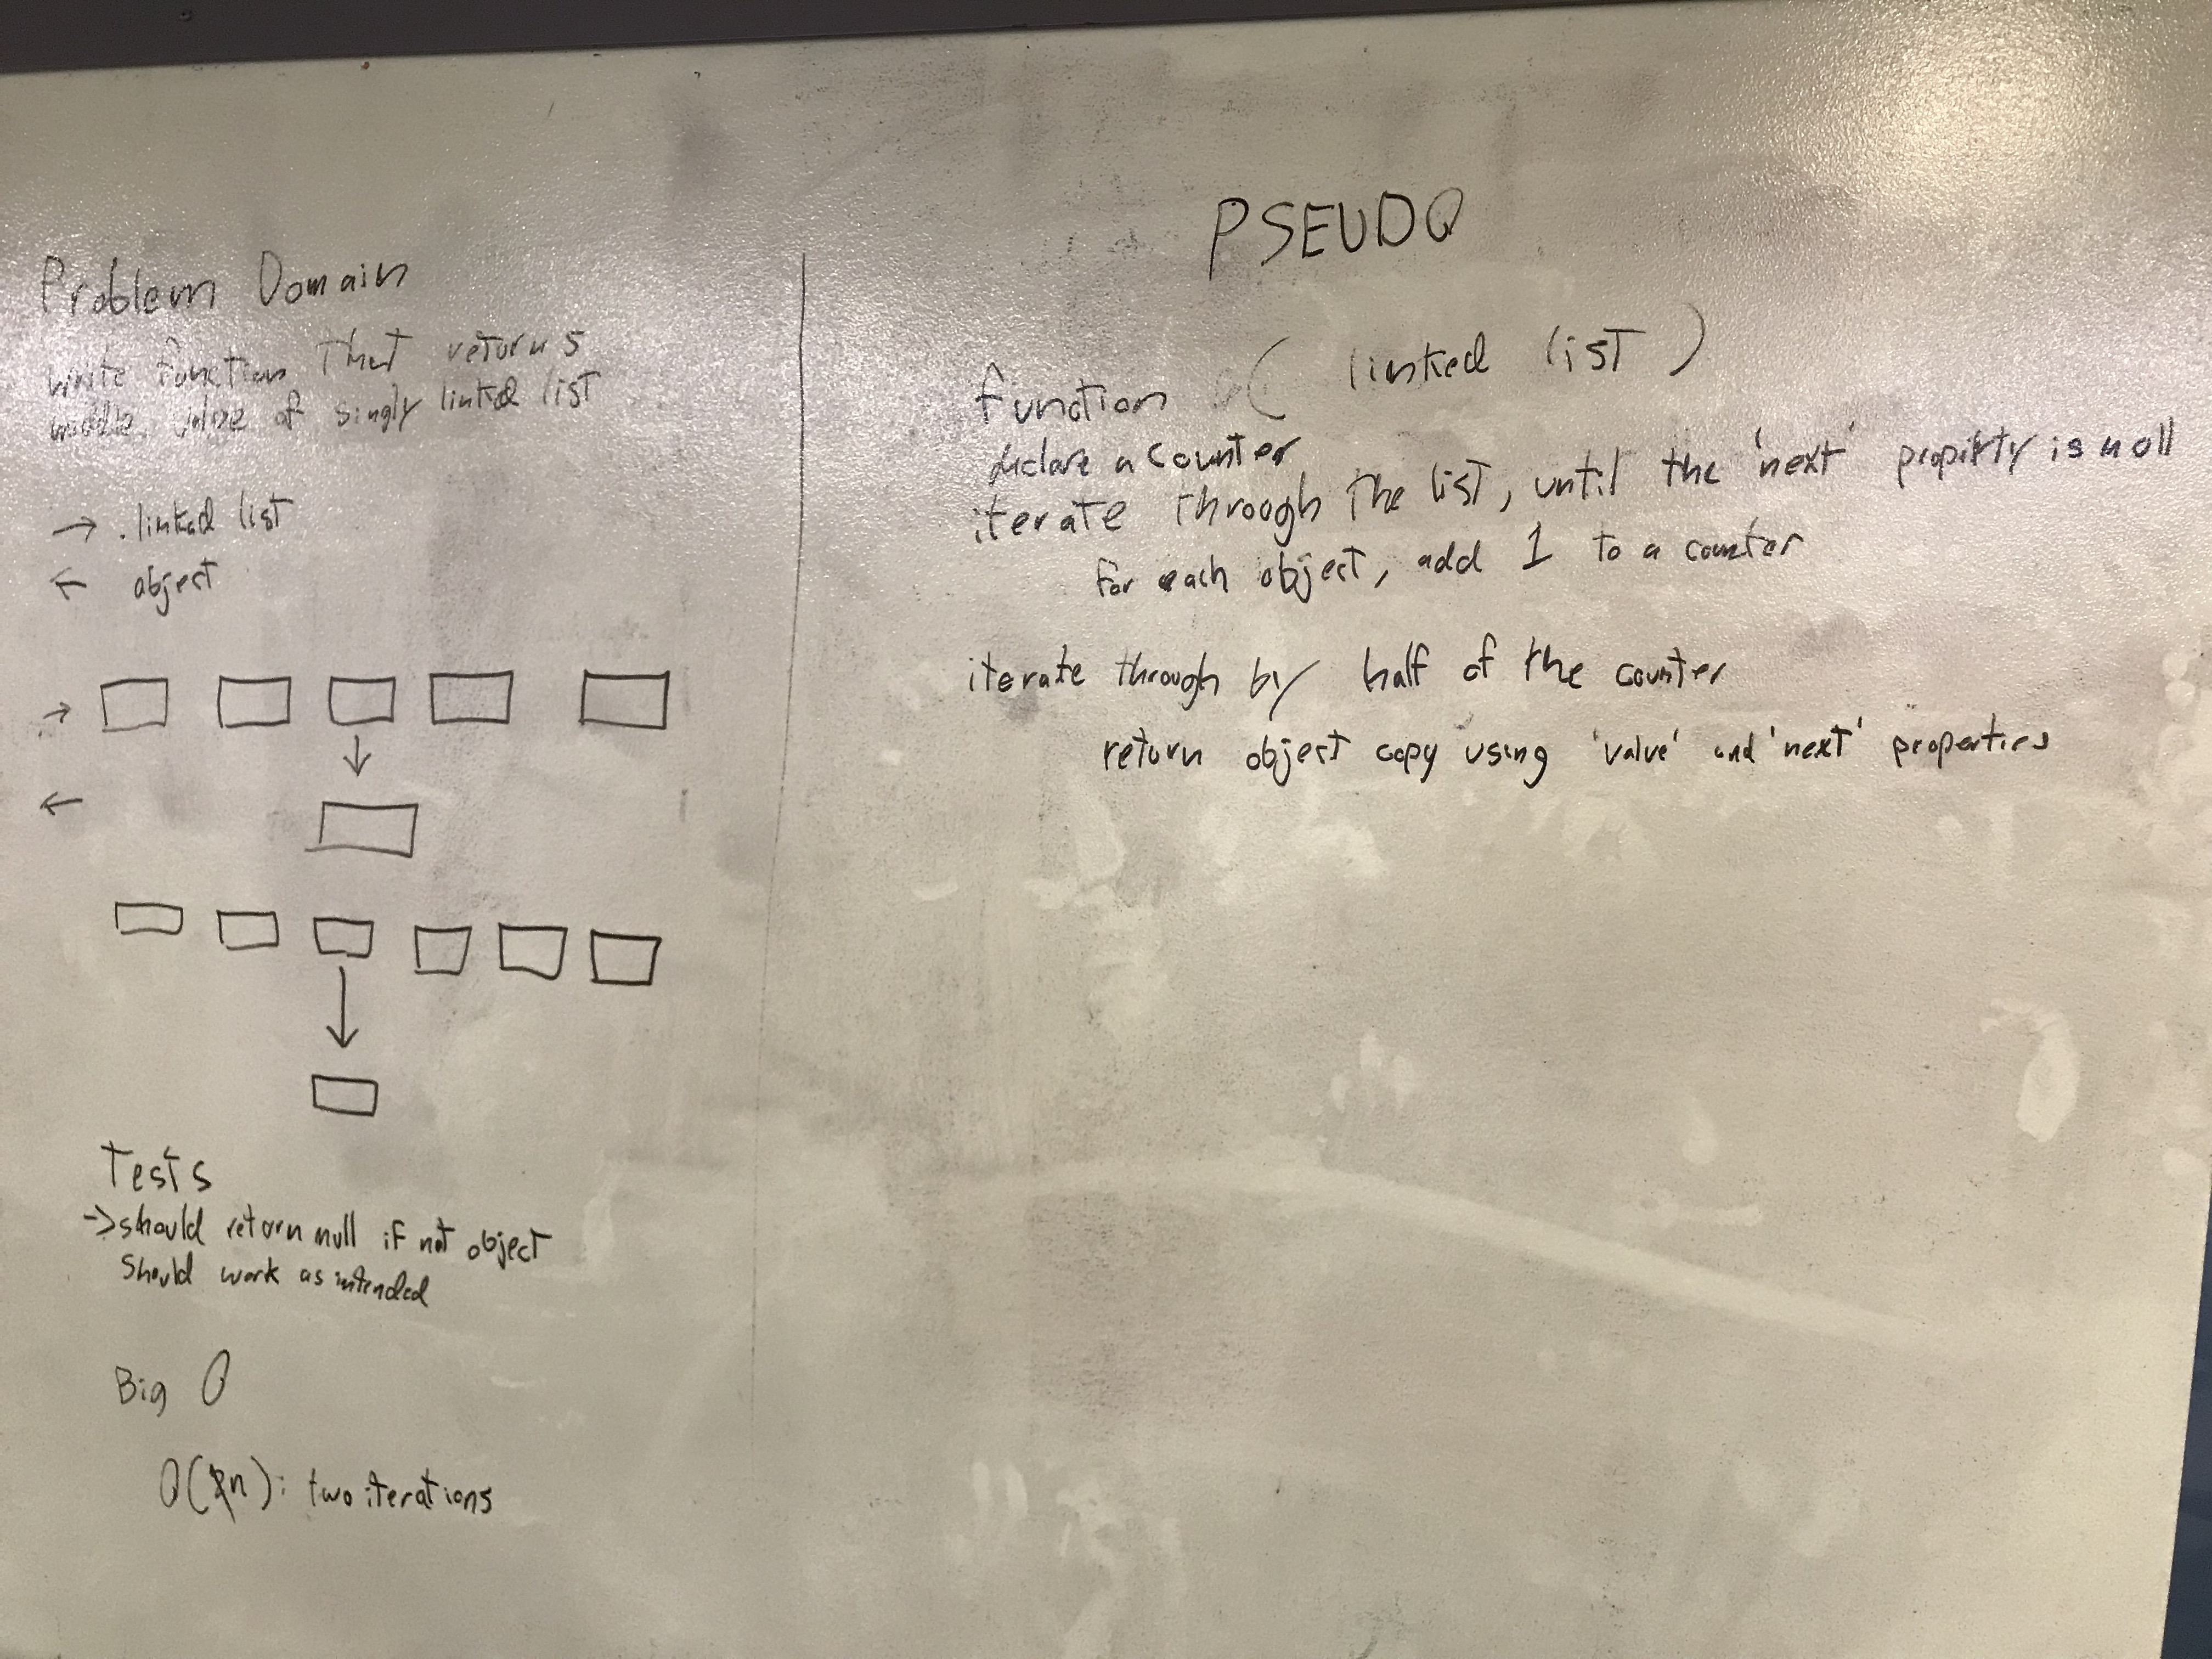 Problem Domain
write function that returns
middle value of singly linked list
→ .linked list
← object
→
←
Tests
-> should return null if not object
Should work as intended
Big O
O(n): two iterations
PSEUDO
function ( linked list )
declare a counter
iterate through the list, until the 'next' property is null
for each object, add 1 to a counter
iterate through by half of the counter
return object copy using 'value' and 'next' properties